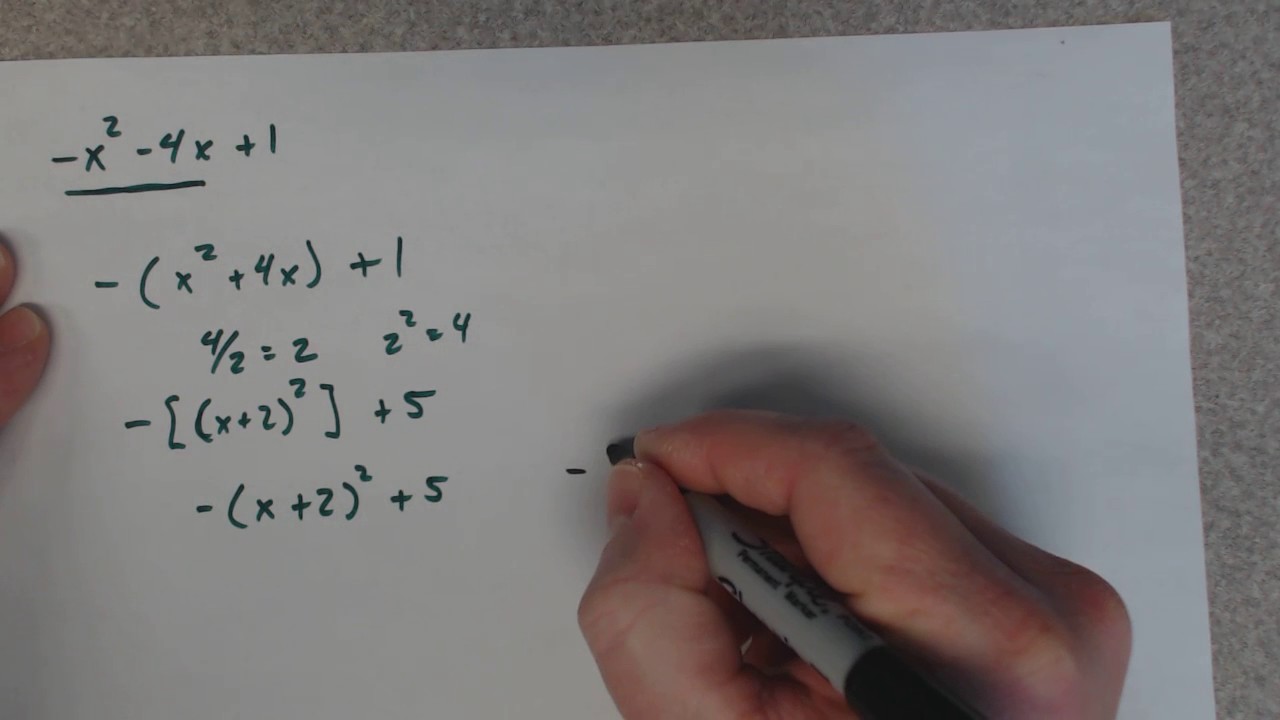 -x² -4x +1
-(x² +4x) +1
4/2 = 2 2² = 4
-[(x+2)²] +5
-(x+2)² +5
-
Sharpie
Permanent Marker